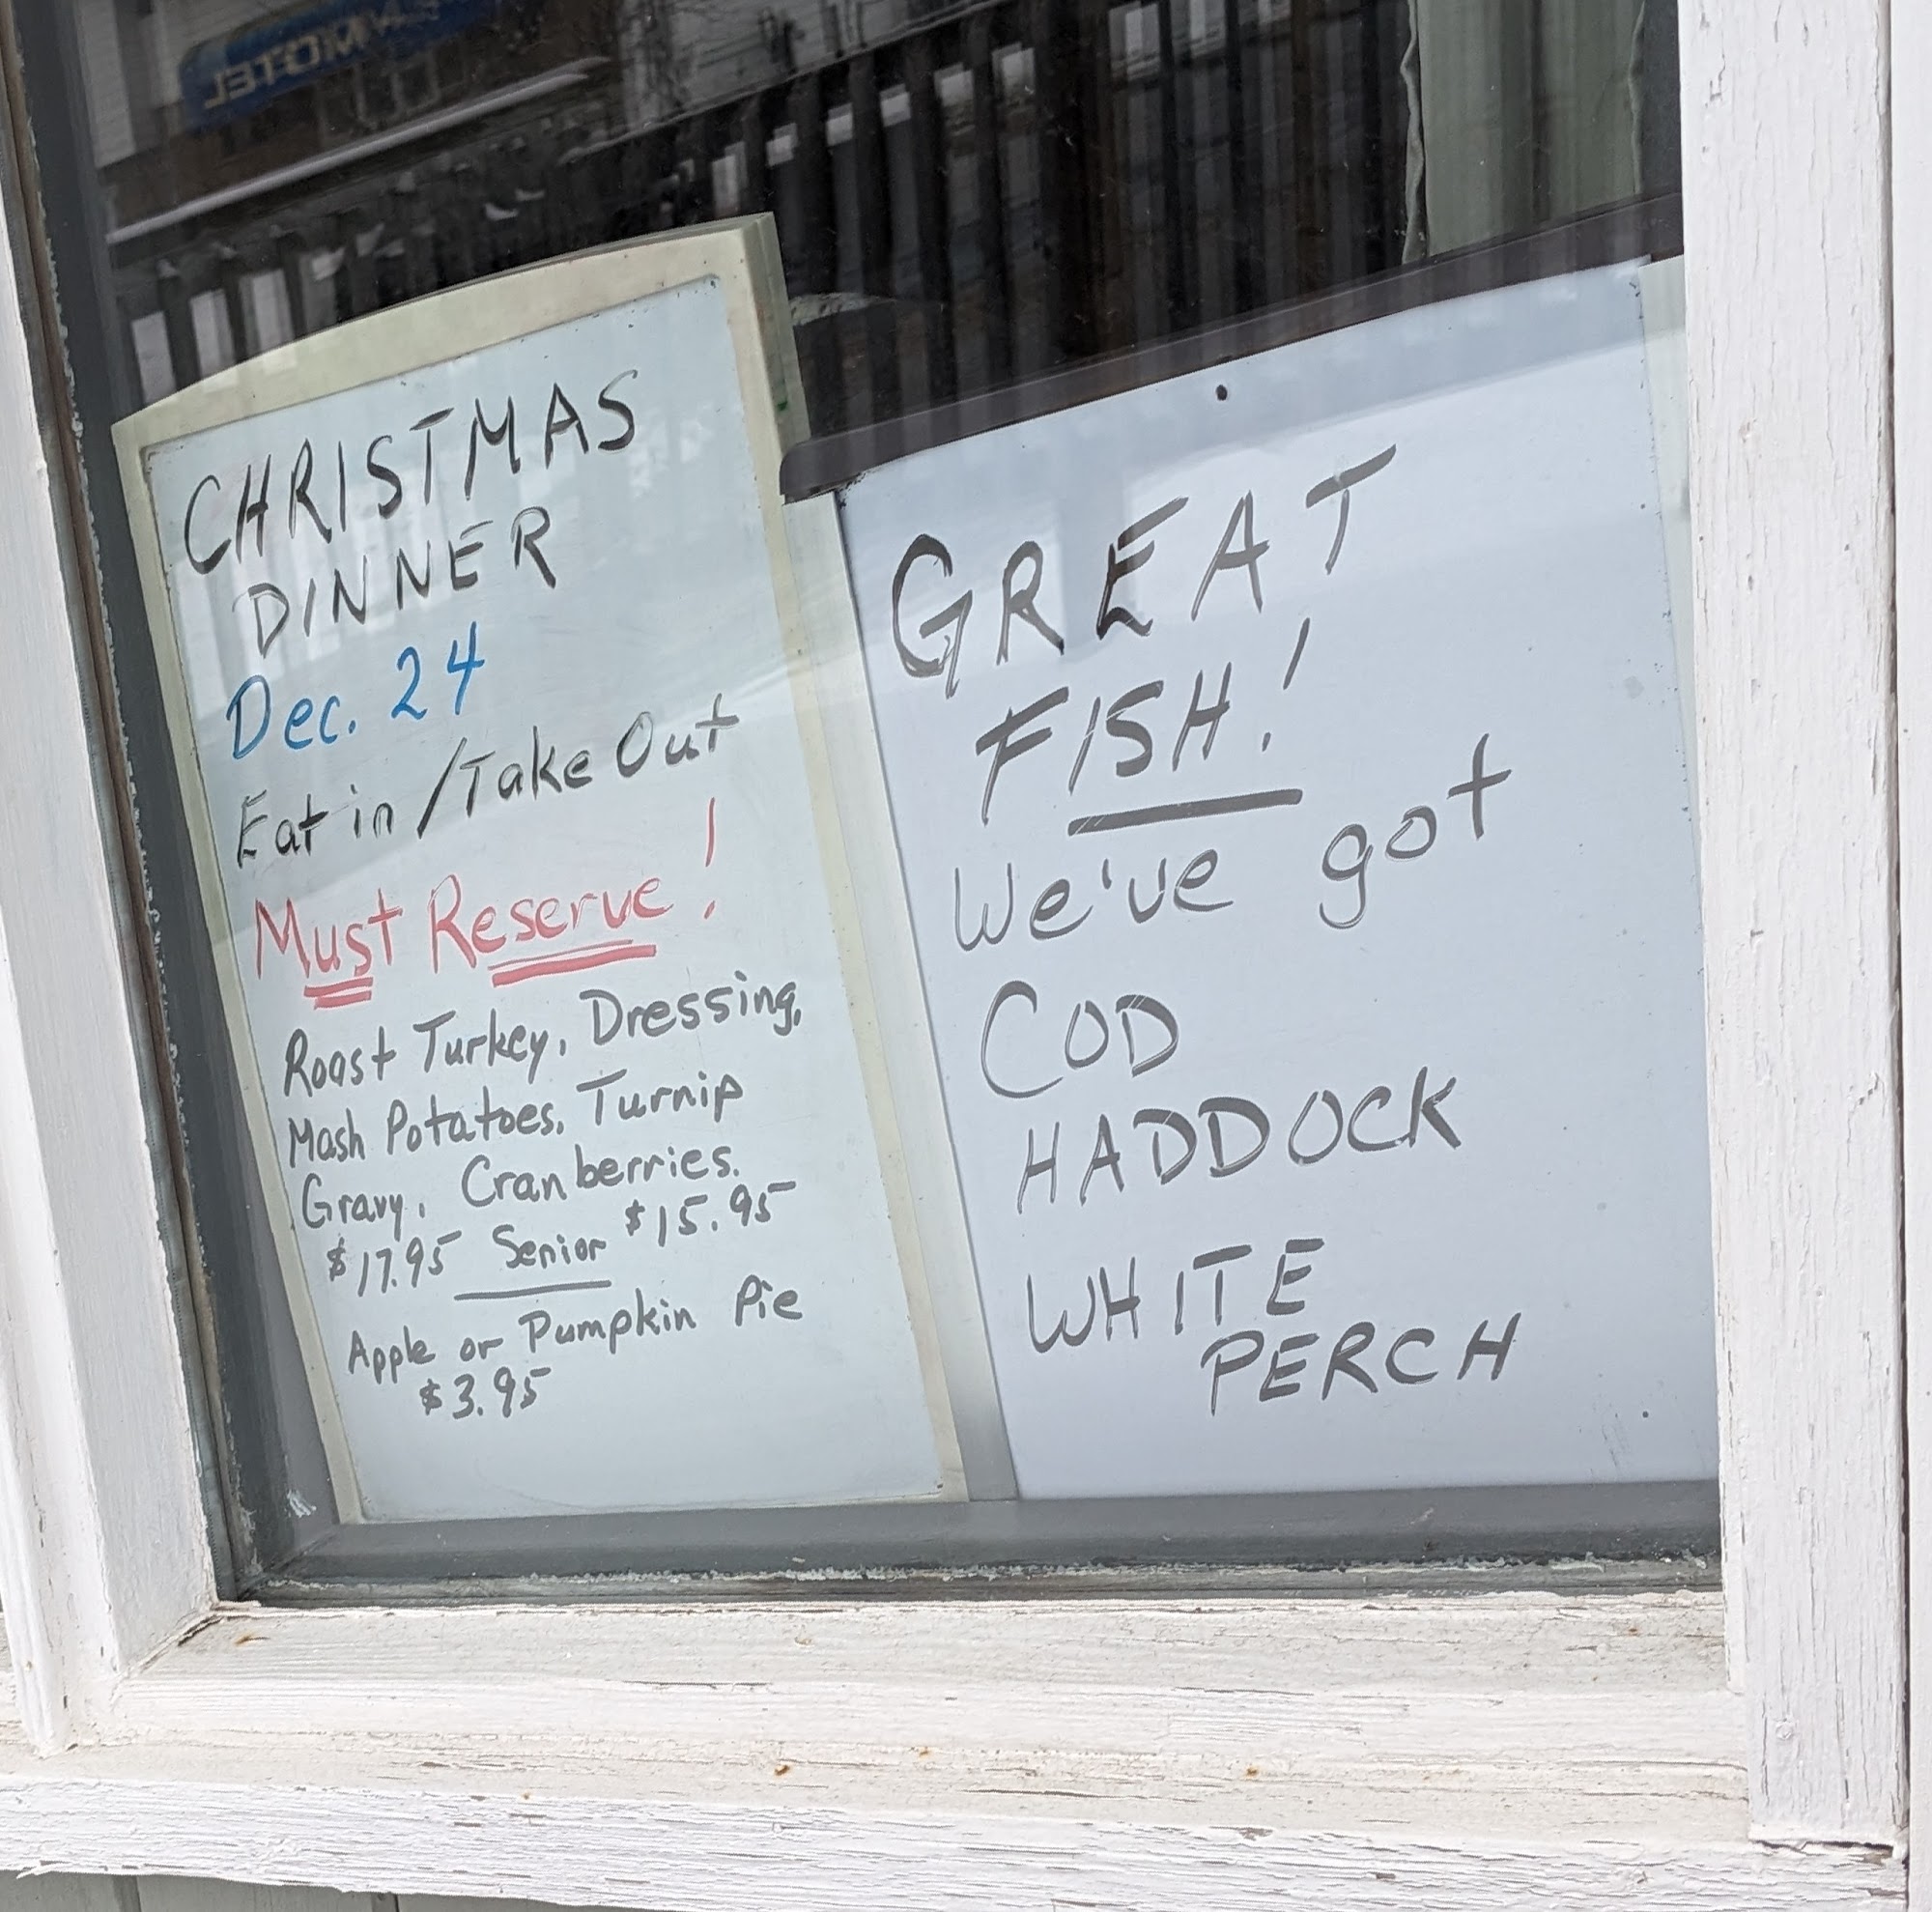 MOTEL
CHRISTMAS
DINNER
Dec. 24
Eat in / Take Out
Must Reserve!
Roast Turkey, Dressing,
Mash Potatoes, Turnip
Gravy, Cranberries.
$17.95 Senior $15.95
Apple or Pumpkin Pie
$3.95
GREAT
FISH!
We've got
COD
HADDOCK
WHITE
PERCH